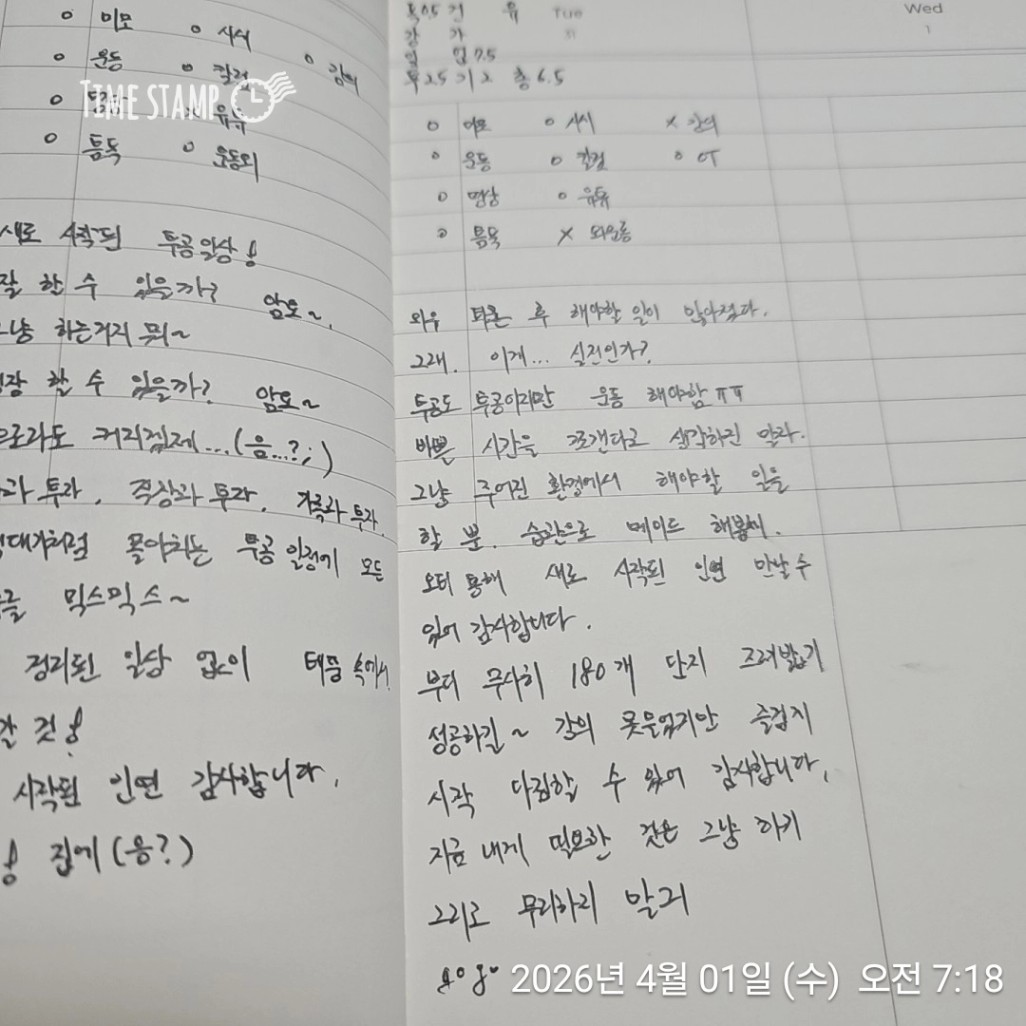 o 미모 o 시시 o 강의
o 운동 o 칼럼
o o 유튜
o 틈독 o 운동외
TIME STAMP
새로 시작된 투공일상!
잘 할 수 있을까? 암오~.
그냥 하는거지 뭐~
성장 할 수 있을까? 암오~
으로라도 커리겠제...(음...?;)
과 투자. 직장과 투자. 가족과 투자.
대기처럼 몰아치는 투공 일정에 모든
믹스믹스~
정리된 일상 없이 태풍 속에서
갈 것!
시작된 인연 감사합니다.
! 집에 (응?)
독0.5 건 유 Tue
강 가 31
일 업7.5
투2.5 기2 총6.5
Wed
1
o 미모 o 시시 x 강의
o 운동 o 칼럼 o OT
o 명상 o 유튜
o 틈독 x
와우 퇴근 후 해야할 일이 많아졌다.
그래. 이게... 실전인가?
투공도 투공이지만 운동 해야함 ㅠㅠ
바쁜 시간을 쪼갠다고 생각하진 말라.
그냥 주어진 환경에서 해야할 일을
할 뿐. 습관으로 메이드 해봅씨.
오티 통해 새로 시작된 인연 만날 수
있어 감사합니다.
부디 무사히 180개 단지 즈려밟기
성공하길~ 강의 못들었지만 즐겁게
시작 다짐할 수 있어 감사합니다.
지금 내게 필요한 것은 그냥 하기
그리고 무리하지 말기
2026년 4월 01일 (수) 오전 7:18